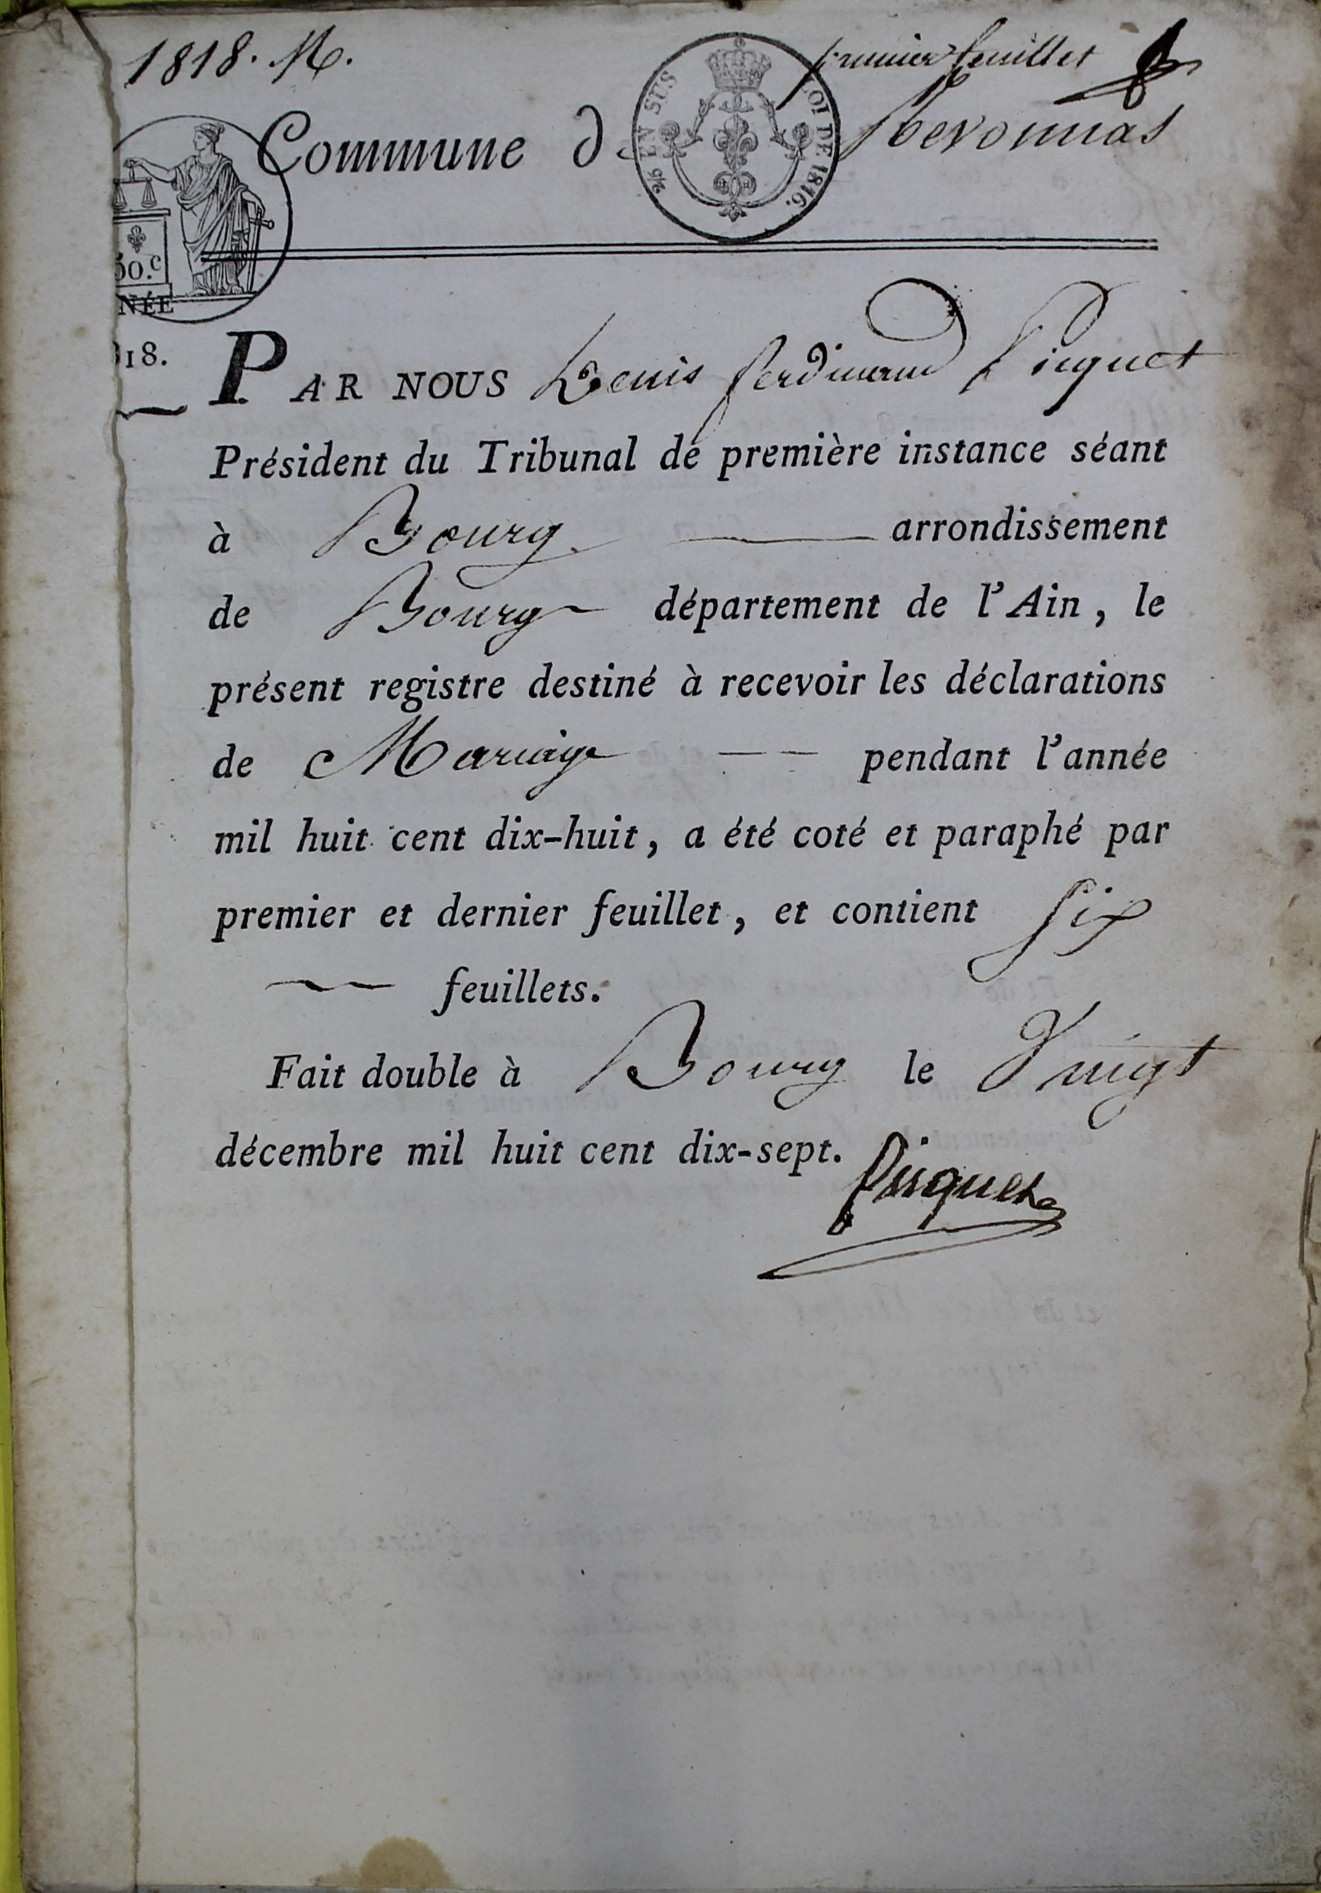 1818. M.
premier feuillet
Commune de Revonnas
2/5 EN SUS
LOI DE 1816.
50.c
NÉE
18.
PAR NOUS Denis ferdinand Picquet
Président du Tribunal de première instance séant
à Bourg arrondissement
de Bourg département de l'Ain, le
présent registre destiné à recevoir les déclarations
de Mariage pendant l'année
mil huit cent dix-huit, a été coté et paraphé par
premier et dernier feuillet, et contient six
feuillets.
Fait double à Bourg le Vingt
décembre mil huit cent dix-sept.
Picquet